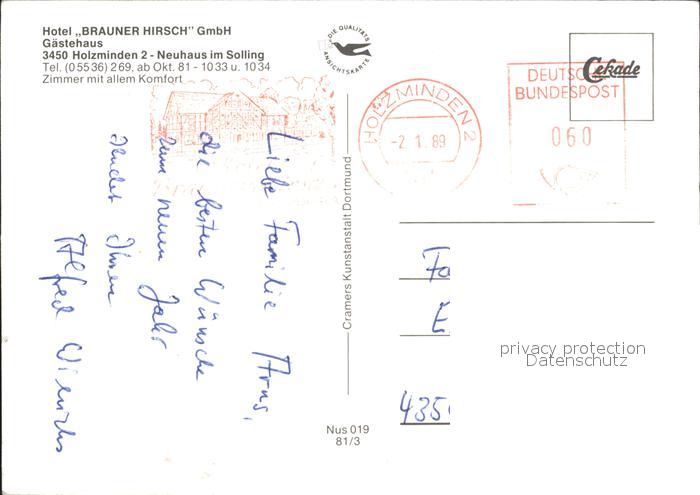 Hotel „BRAUNER HIRSCH" GmbH
Gästehaus
3450 Holzminden 2 - Neuhaus im Solling
Tel. (05536) 269, ab Okt. 81 - 1033 u. 1034
Zimmer mit allem Komfort
DIE QUALITÄTS
ANSICHTSKARTE
HOLZMINDEN 2
-2.1.89
DEUTSCHE
BUNDESPOST
060
Cekade
Liebe Familie
die besten Wünsche
zum neuen Jahr
sendet Ihnen
Alfred
Cramers Kunstanstalt Dortmund
Fa
E
435
privacy protection
Datenschutz
Nus 019
81/3